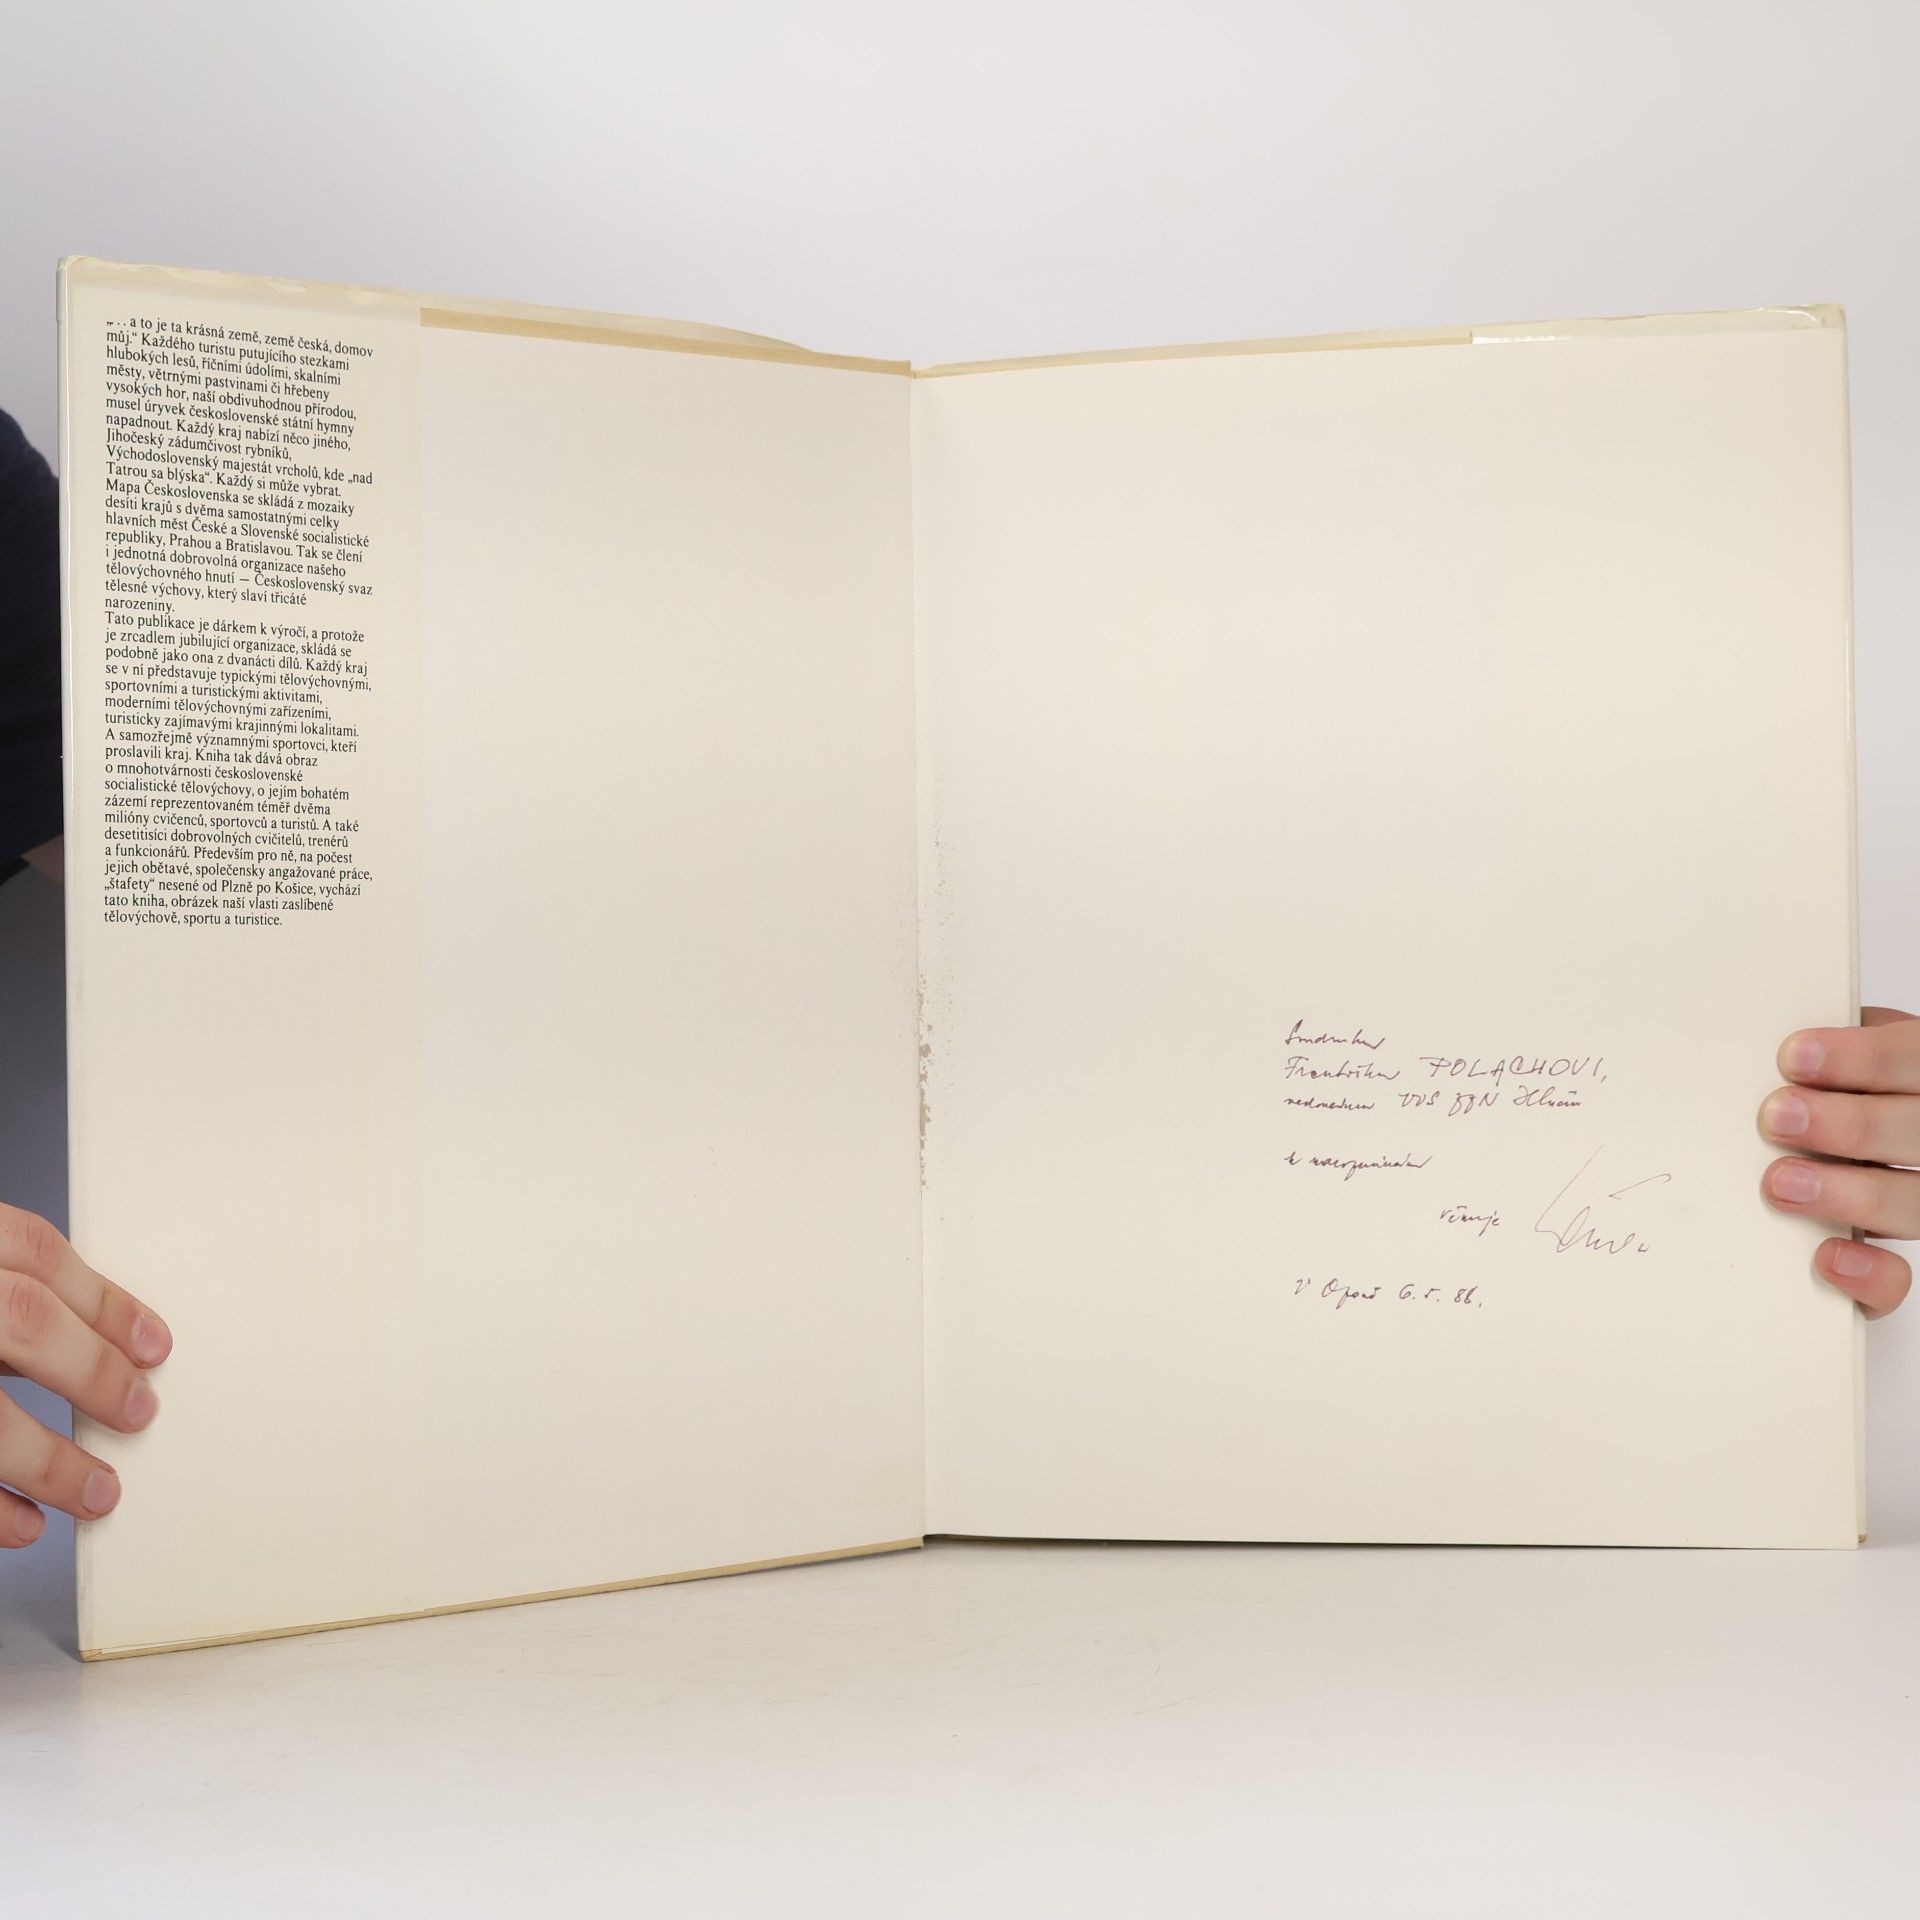 „. . a to je ta krásná země, země česká, domov
můj.“ Každého turistu putujícího stezkami
hlubokých lesů, říčními údolími, skalními
městy, větrnými pastvinami či hřebeny
vysokých hor, naší obdivuhodnou přírodou,
musel úryvek československé státní hymny
napadnout. Každý kraj nabízí něco jiného,
Jihočeský zádumčivost rybníků,
Východoslovenský majestát vrcholů, kde „nad
Tatrou sa blýska“. Každý si může vybrat.
Mapa Československa se skládá z mozaiky
desíti krajů s dvěma samostatnými celky
hlavních měst České a Slovenské socialistické
republiky, Prahou a Bratislavou. Tak se člení
i jednotná dobrovolná organizace našeho
tělovýchovného hnutí — Československý svaz
tělesné výchovy, který slaví třicáté
narozeniny.
Tato publikace je dárkem k výročí, a protože
je zrcadlem jubilující organizace, skládá se
podobně jako ona z dvanácti dílů. Každý kraj
se v ní představuje typickými tělovýchovnými,
sportovními a turistickými aktivitami,
moderními tělovýchovnými zařízeními,
turisticky zajímavými krajinnými lokalitami.
A samozřejmě významnými sportovci, kteří
proslavili kraj. Kniha tak dává obraz
o mnohotvárnosti československé
socialistické tělovýchovy, o jejím bohatém
zázemí reprezentovaném téměř dvěma
milióny cvičenců, sportovců a turistů. A také
desetitisíci dobrovolných cvičitelů, trenérů
a funkcionářů. Především pro ně, na počest
jejich obětavé, společensky angažované práce,
„štafety“ nesené od Plzně po Košice, vychází
tato kniha, obrázek naší vlasti zaslíbené
tělovýchově, sportu a turistice.
Soudruhu
Františku POLACHOVI,
VVS JZN Hlučín
k
věnuje
V Opavě 6. 5. 86.